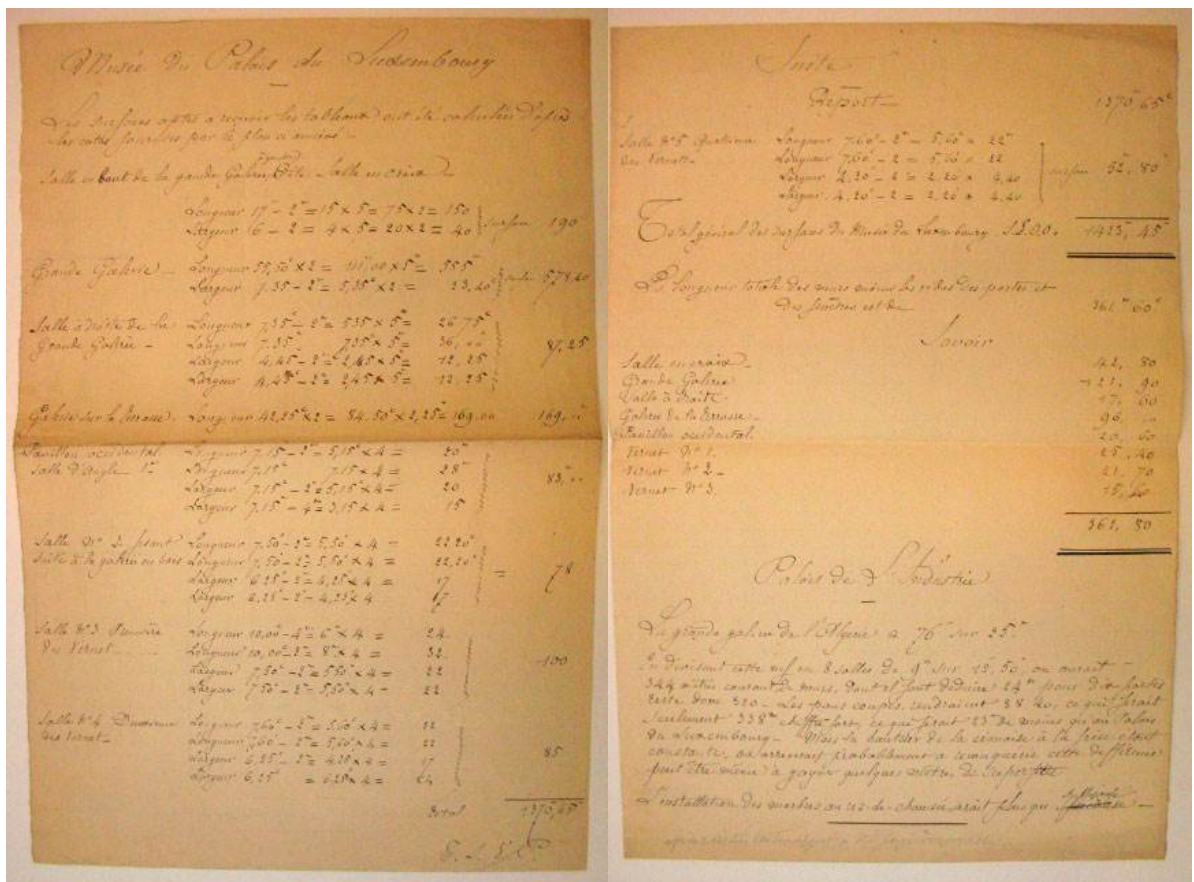 Musée du Palais du Luxembourg
Les surfaces aptes à recevoir les tableaux ont été calculées d'après
les cotes fournies par le plan ci annexé
Salle en bout de la grande Galerie, dite Salle en croix
Longueur 17 - 2 = 15 x 5 = 75 x 2 = 150
Largeur 6 - 2 = 4 x 5 = 20 x 2 = 40 surface 190
Grande Galerie Longueur 55,50 x 2 = 111,00 x 5 = 555
Largeur 7.35 - 2 = 5,35 x 2 = 23,40 578,40
Salle à droite de la Longueur 7,35 - 2 = 535 x 5 = 26 75
Grande Galerie - Longueur 7.35 735 x 5 = 36,
Largeur 4,45 - 2 = 2,45 x 5 = 12,25 87,25
Largeur 4,45 - 2 = 2,45 x 5 = 12,25
Galerie sur la terrasse Longueur 42,25 x 2 = 84.50 x 2,25 = 169.00 169,
Pavillon occidental Longueur 7.15 - 2 = 5,15 x 4 = 20
Salle d'angle 1 Longueur 7.15 7.15 x 4 = 28
Largeur 7.15 - 2 = 5,15 x 4 = 20 83,
Largeur 7.15 - 4 = 3,15 x 4 = 15
Salle N° 2 faisant Longueur 7,50 - 2 = 5,50 x 4 = 22 20
suite à la galerie en bois Longueur 7,50 - 2 = 5,50 x 4 = 22,20
Largeur 6 25 - 2 = 4,25 x 4 = 17 = 78
Largeur 6,25 - 2 = 4,25 x 4 17
Salle N° 3 Première Longueur 10,00 - 4 = 6 x 4 = 24
des Vernet Longueur 10,00 - 2 = 8 x 4 = 32
Largeur 7,50 - 2 = 550 x 4 = 22 100
Largeur 7 50 - 2 = 5,50 x 4 = 22
Salle N° 4 Deuxième Longueur 7,60 - 2 = 5,60 x 4 = 22
des Vernet Longueur 7,60 - 2 = 5,60 x 4 = 22
Largeur 6,25 - 2 = 4,25 x 4 = 17 85
Largeur 6,25 = 6,25 x 4 = 24
Total 1370,65
Suite
Report 1370 65
Salle N° 5 Quatrième Longueur 7.60 - 2 = 5,60 x 22
des Vernet Longueur 7,60 - 2 = 5,60 x 22
Largeur 4,20 - 2 = 2,20 x 4,40 surface 52, 80
Largeur 4.20 - 2 = 2,20 x 4,40
Total général des surfaces du Musée du Luxembourg. S.E.O.O. 1423, 45
La longueur totale des murs moins les vides des portes et
des fenêtres est de 361 60
Savoir
Salle en croix 42, 80
Grande Galerie 121, 90
Salle à droite 17, 60
Galerie de la terrasse 96
Pavillon occidental 20, 60
Vernet N° 1. 25, 40
Vernet N° 2 21, 70
Vernet N° 3 15, 60
361, 80
Palais de l'Industrie
La grande galerie de l'Algérie a 76 sur 25
En divisant cette nef en 8 salles de 9 sur 12,50 on aurait
344 mètres courant de murs, dont il faut déduire 24 pour dix portes
reste donc 320 - Les pans coupés rendraient 38 40, ce qui ferait
seulement 338 chiffre fort, ce qui ferait 23 de moins qu'au Palais
du Luxembourg - Mais la hauteur de la cimaise à la frise étant
constante, on arriverait probablement à reconquérir cette différence
peut être même à gagner quelques mètres de superficie
L'installation des marbres au rez-de-chaussée serait plus que